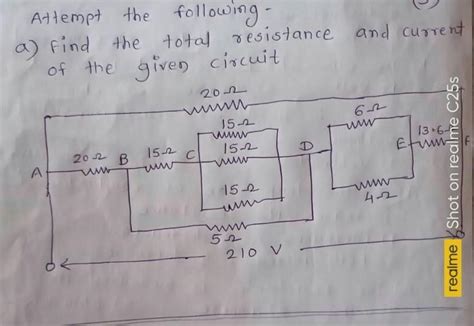 Attempt the following -
a) find the total resistance and current
of the given circuit
20 Ω
15 Ω
6 Ω
20 Ω B 15 Ω C 15 Ω D E 13.6
A F
15 Ω
4 Ω
5 Ω
210 V
realme Shot on realme C25s